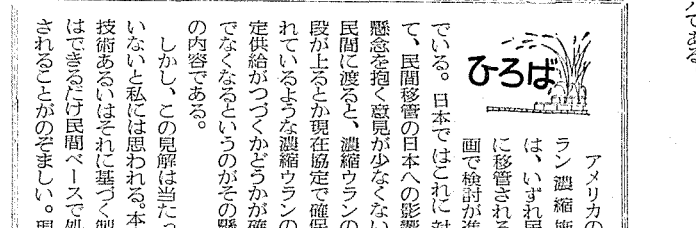 ひろば
アメリカの
ラン濃縮施
は、いずれ民
に移管される
画で検討が進
でいる。日本ではこれに対
て、民間移管の日本への影響
懸念を抱く意見が少なくない
民間に渡ると、濃縮ウランの
段が上るとか現在協定で確保
れているような濃縮ウランの
定供給がつづくかどうかが確
でなくなるというのがその懸
の内容である。
しかし、この見解は当たっ
いないと私には思われる。本
技術あるいはそれに基づく制
はできるだけ民間ベースで処
されることがのぞましい。現
である